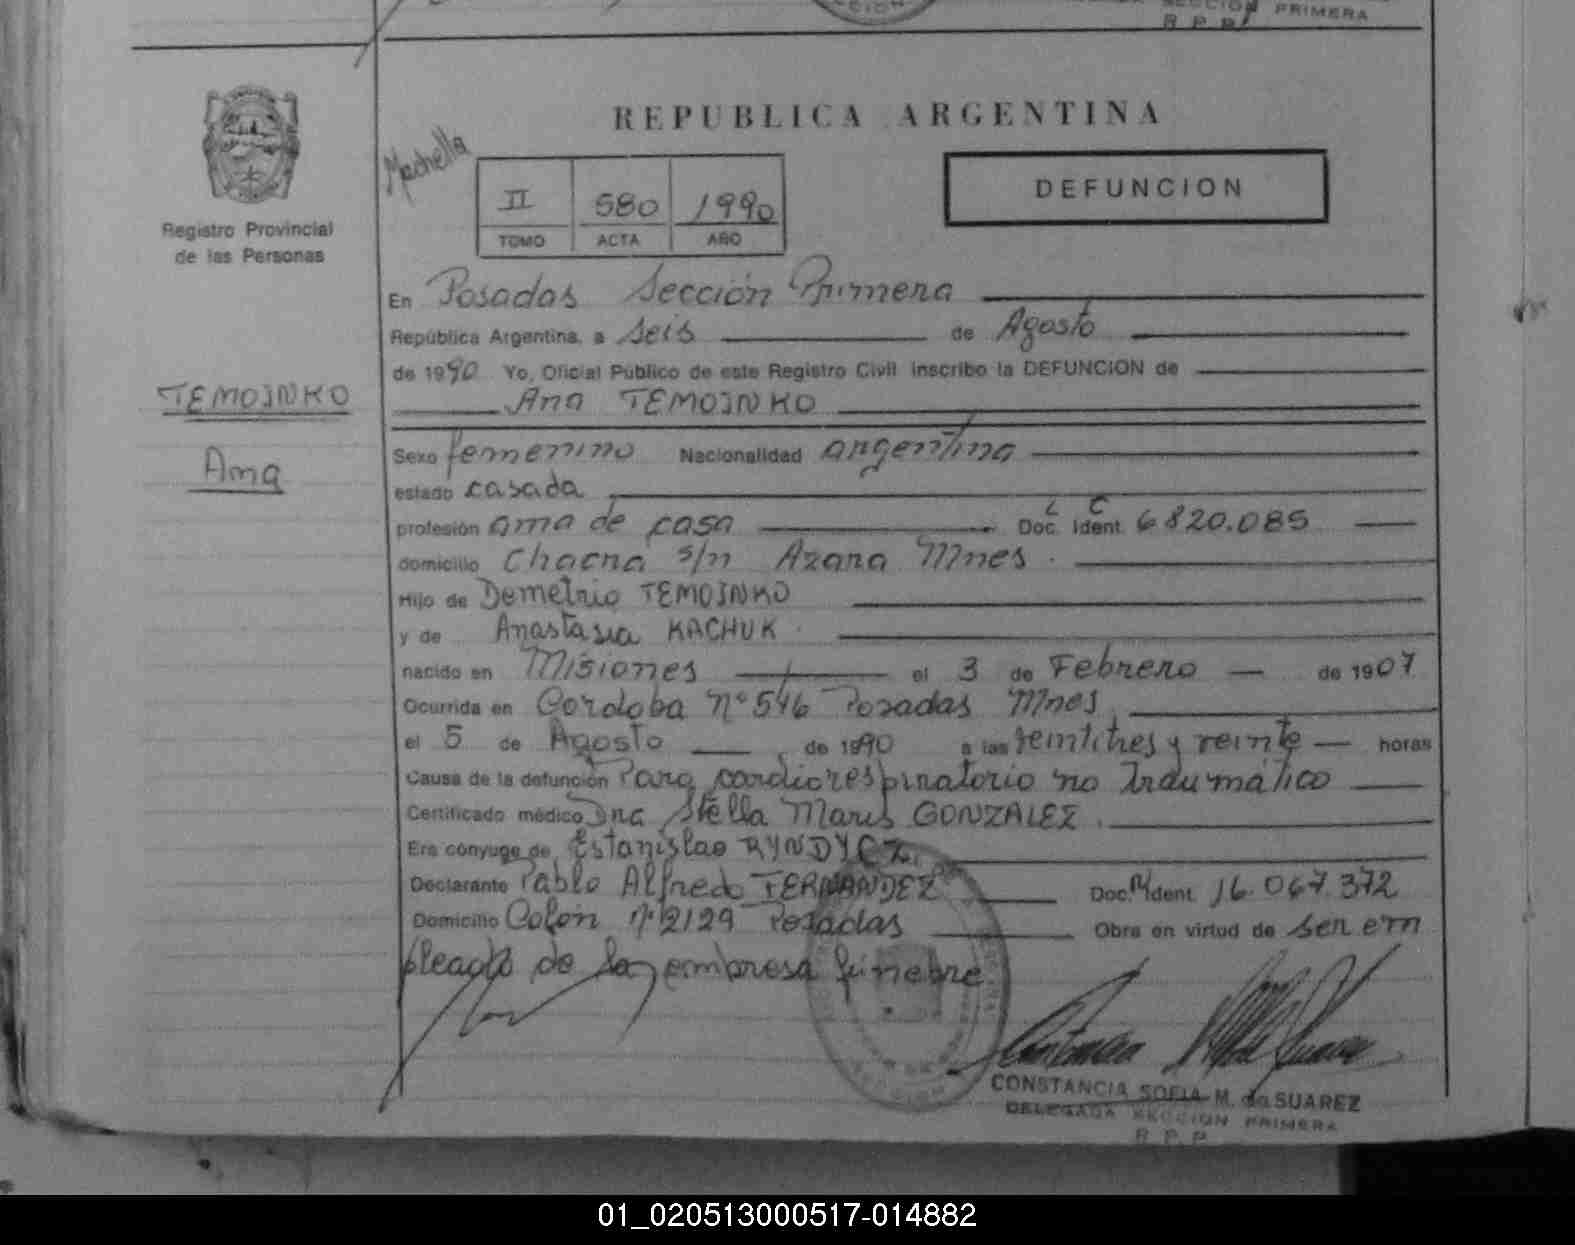 SECCION PRIMERA
R. P. P.
REPUBLICA ARGENTINA
Machella
II 580 1990
TOMO ACTA AÑO
DEFUNCION
Registro Provincial
de las Personas
TEMOINKO
Ana
En Posadas Sección Primera
República Argentina, a seis de Agosto
de 1990 Yo, Oficial Público de este Registro Civil inscribo la DEFUNCION de
Ana TEMOINKO
Sexo femenino Nacionalidad argentina
estado casada
profesión ama de casa Doc. Ident. L C 6820.085
domicilio Chacra s/n Azara Mnes.
Hijo de Demetrio TEMOINKO
y de Anastasia KACHUK.
nacido en Misiones el 3 de Febrero de 1907
Ocurrida en Cordoba N° 546 Posadas Mnes.
el 5 de Agosto de 1990 a las veintitres y veinte horas
Causa de la defunción Paro cardiorespiratorio no traumático
Certificado médico Dra Stella Maris GONZALEZ.
Era cónyuge de Estanislao RYNDYCZ.
Declarante Pablo Alfredo FERNANDEZ Doc. Ident. 16.067.372
Domicilio Colón N° 2129 Posadas Obra en virtud de ser em
pleado de la empresa fúnebre
CONSTANCIA SOFIA M. de SUAREZ
DELEGADA SECCION PRIMERA
R. P. P.
01_020513000517-014882